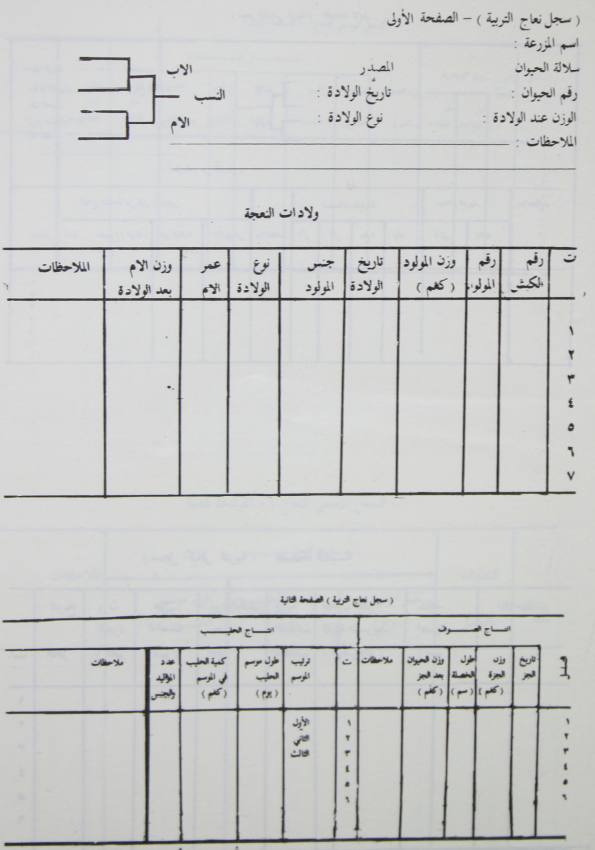 ( سجل نعاج التربية ) – الصفحة الأولى
اسم المزرعة :
سلالة الحيوان المصدر
رقم الحيوان : تاريخ الولادة :
الوزن عند الولادة : نوع الولادة :
الملاحظات :
الاب
النسب
الام
ولادات النعجة
ت رقم الكبش رقم المولود وزن المولود ( كغم ) تاريخ الولادة جنس المولود نوع الولادة عمر الام وزن الام بعد الولادة الملاحظات
١
٢
٣
٤
٥
٦
٧
( سجل نعاج التربية ) الصفحة الثانية
انتاج الصــوف انتاج الحليــب
تاريخ الجز وزن الجزة ( كغم ) طول الخصلة ( سم ) وزن الحيوان بعد الجز ( كغم ) ملاحظات ت ترتيب الموسم طول موسم الحليب ( يوم ) كمية الحليب في الموسم ( كغم ) عدد المواليد والجنس ملاحظات
١ ١ الأول
٢ ٢ الثاني
٣ ٣ الثالث
٤ ٤
٥ ٥
٦ ٦